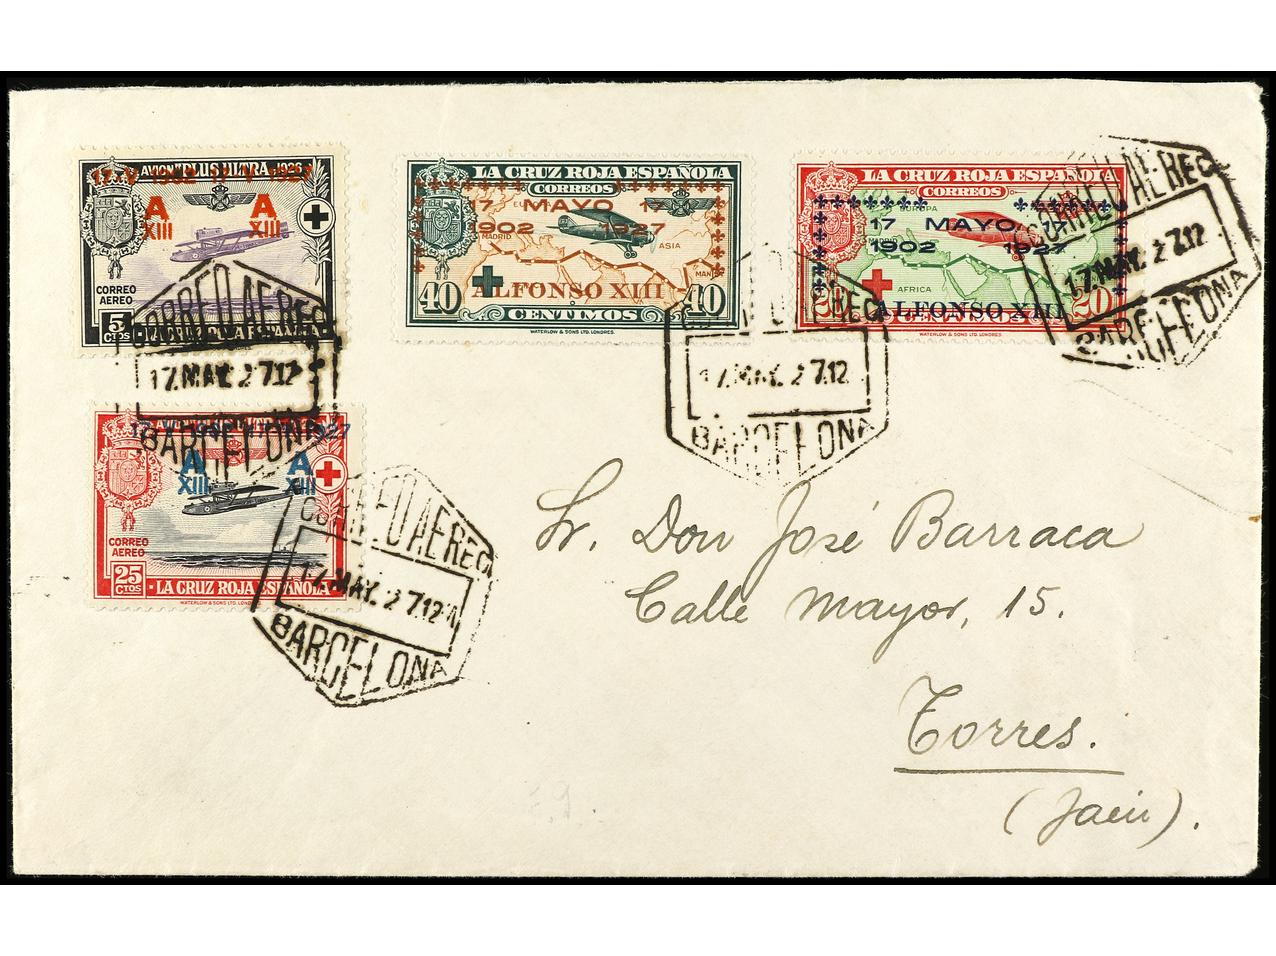 AVION "PLUS ULTRA" 1926
17.V 1902 17 V 1927
A A
XIII XIII
CORREO
AEREO
5
CTOS
LA CRUZ ROJA ESPAÑOLA
LA CRUZ ROJA ESPAÑOLA
CORREOS
17 MAYO 17
1902 1927
MADRID
ASIA
ALFONSO XIII
40 CENTIMOS 40
WATERLOW & SONS LTD. LONDRES.
LA CRUZ ROJA ESPAÑOLA
CORREOS
EUROPA
17 MAYO 17
1902 1927
AFRICA
ALFONSO XIII
20 20
WATERLOW & SONS LTD. LONDRES.
CORREO AEREO
17.MAY.27.12
BARCELONA
CORREO AEREO
17.MAY.27.12
BARCELONA
CORREO AEREO
17.MAY.27.12
BARCELONA
A A
XIII XIII
CORREO
AEREO
25
CTOS
LA CRUZ ROJA ESPAÑOLA
WATERLOW & SONS LTD. LONDRES.
CORREO AEREO
17.MAY.27.12
BARCELONA
Sr. Don José Barraca
Calle Mayor, 15.
Torres.
(Jaén).